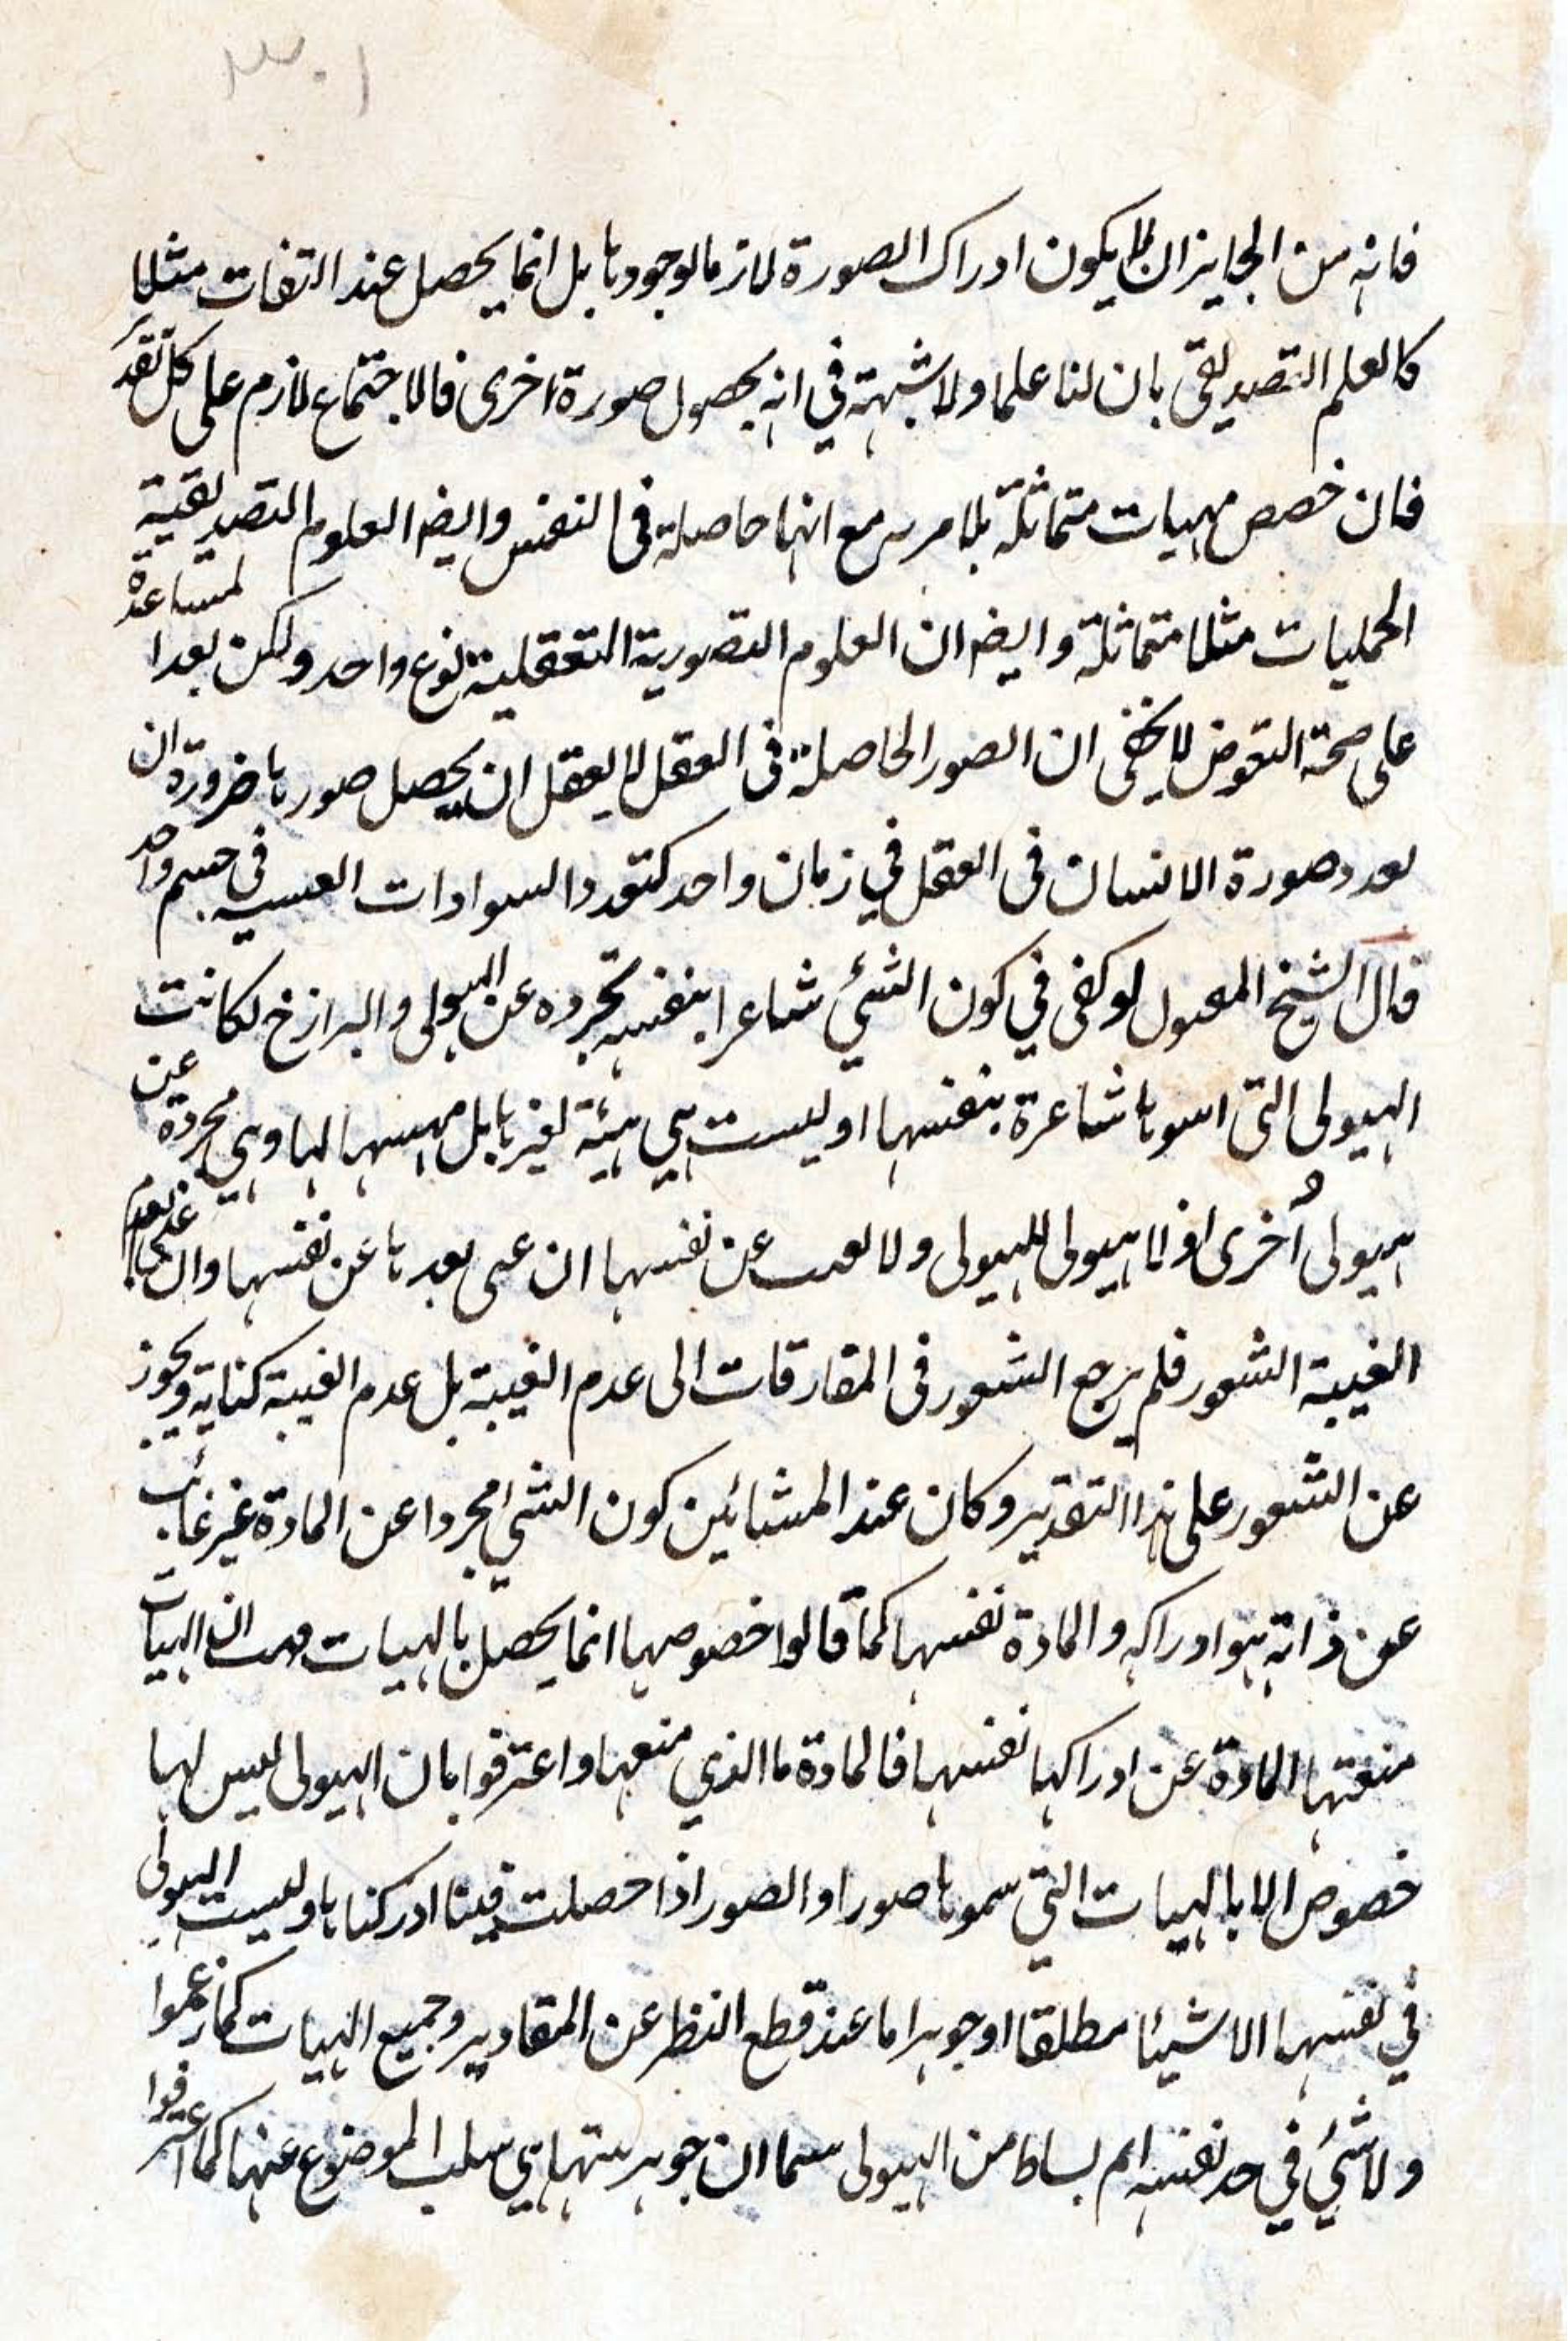 ٣٠١
فانه من الجايز ان لا يكون ادراك الصورة لازما لوجودها بل انما يحصل عند التفات مثلا
كالعلم التصديقى بان لنا علما ولا شبهة في انه بحصول صورة اخرى فالاجتماع لازم على كل تقدير
فان خصص بهيات متماثلة بلا مرية مع انها حاصلة فى النفس وايضا العلوم التصديقية
الحمليات مثلا متماثلة وايضا ان العلوم التصورية التعقلية نوع واحد ولكن بعد المساعدة
على صحة النقوض لا يخفى ان الصور الحاصلة فى العقل لا يعقل ان يحصل صورها ضرورة ان
تعدد صورة الانسان فى العقل في زمان واحد كتعدد السوادات العينية في جسم واحد
قال الشيخ المقتول لو كفى في كون الشئ شاعرا بنفسه تجرده عن الهيولى والبرازخ لكانت
الهيولى التى اثبتوها شاعرة بنفسها اذ ليست هي هيئة لغيرها بل مهيتها لها وهي مجردة عن
هيولى أخرى اذ لا هيولى للهيولى ولا تغيب عن نفسها ان عنى بعدها عن نفسها وان عنى بعدم
الغيبة الشعور فلم يرجع الشعور فى المفارقات الى عدم الغيبة بل عدم الغيبة كناية وتجوز
عن الشعور على هذا التقدير وكان عند المشائين كون الشئ مجردا عن المادة غير غائب
عن ذاته هو ادراكه والمادة نفسها كما قالوا خصوصها انما يحصل بالهيات فهب ان الهيات
منعتها المادة عن ادراكها نفسها فالمادة ما الذي منعها واعترفوا بان الهيولى ليس لها
خصوص الا بالهيات التي سموها صورا والصور اذا حصلت فينا ادركناها وليست الهيولى
في نفسها الا شيئا مطلقا او جوهرا ما عند قطع النظر عن المقادير وجميع الهيات كما زعموا
ولا شئ في حد نفسه اتم بساطة من الهيولى سيما ان جوهريتها هي سلب الموضوع عنها كما اعترفوا